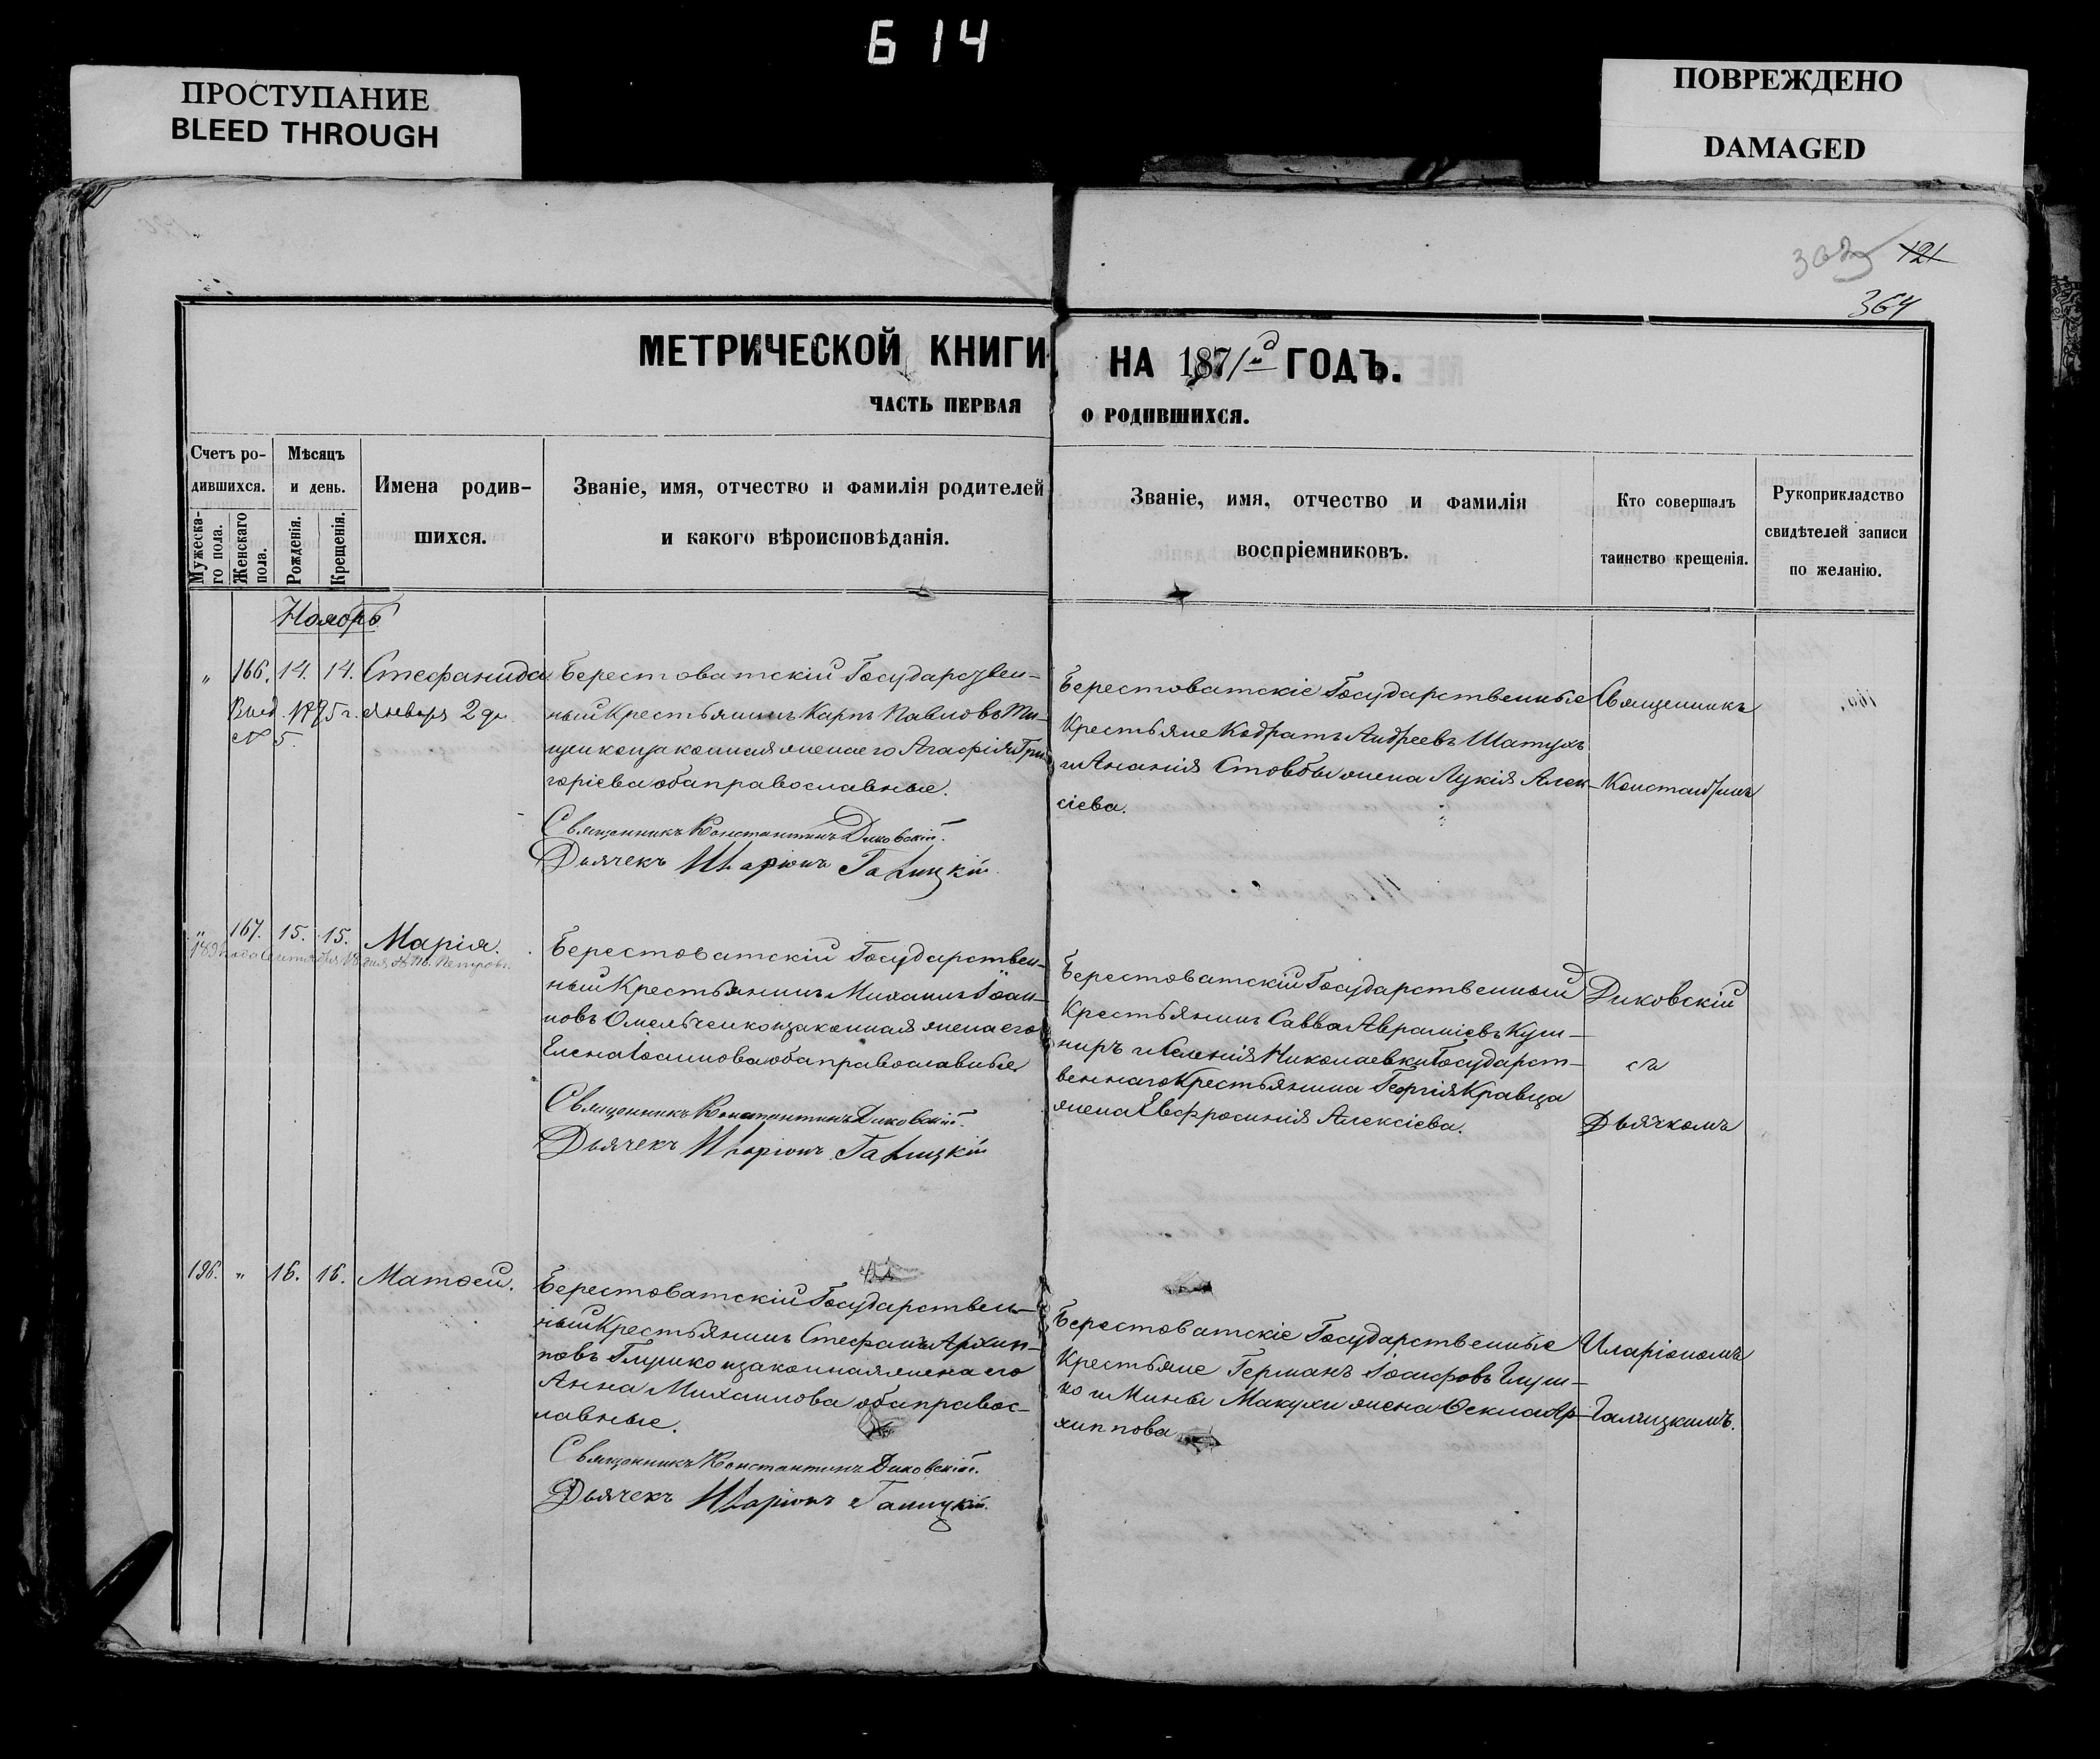 Б 14
ПРОСТУПАНИЕ
BLEED THROUGH
ПОВРЕЖДЕНО
DAMAGED
121
364
МЕТРИЧЕСКОЙ КНИГИ НА 1871й ГОДЪ.
ЧАСТЬ ПЕРВАЯ О РОДИВШИХСЯ.
Счетъ ро-
дившихся.
Мужеска-
го пола.
Женскаго
пола.
Мѣсяцъ
и день.
Рожденія.
Крещенія.
Имена родив-
шихся.
Званіе, имя, отчество и фамилія родителей
и какого вѣроисповѣданія.
Званіе, имя, отчество и фамилія
воспріемниковъ.
Кто совершалъ
таинство крещенія.
Рукоприкладство
свидѣтелей записи
по желанію.
Ноябрь
" 166. 14. 14. Стефанида
Выд. 1895 г. января 2 дн.
№ 5.
Берестоватскій Государствен-
ный Крестьянинъ Карпъ Павловъ Ти-
щенко изаконная жена его Агафія Гри-
горіева оба православные.
Священникъ Константинъ Диковскій.
Дьячекъ Иларіонъ Галицкій.
Берестоватскіе Государственные
Крестьяне Кодратъ Андреевъ Шатухъ
и Ананія Стовбы жена Лукія Алек-
сіева.
Священникъ
Константинъ
" 167. 15. 15. Марія.
Берестоватскій Государствен-
ный Крестьянинъ Михаилъ Іоан-
новъ Омельченко изаконная жена его
Елена Іоаннова оба православные
Священникъ Константинъ Диковскій.
Дьячекъ Иларіонъ Галицкій
Берестоватскій Государственный
Крестьянинъ Савва Аврамiевъ Куш-
ниръ и Николаевки Государст-
веннаго Крестьянина Георгія Кравца
жена Евфросинія Алексіева.
Диковскій
съ
Дьячкомъ
196. " 16. 16. Матфей.
Берестоватскій Государствен-
ный Крестьянинъ Стефанъ Архип-
повъ Глушко изаконная жена его
Анна Михаилова оба правос-
лавные.
Священникъ Константинъ Диковскій.
Дьячекъ Иларіонъ Галицкій.
Берестоватскіе Государственные
Крестьяне Германъ Іоасифовъ Глуш-
ко и Мины Макухи жена Ѳекла Ар-
хиппова
Иларіономъ
Галицкимъ.